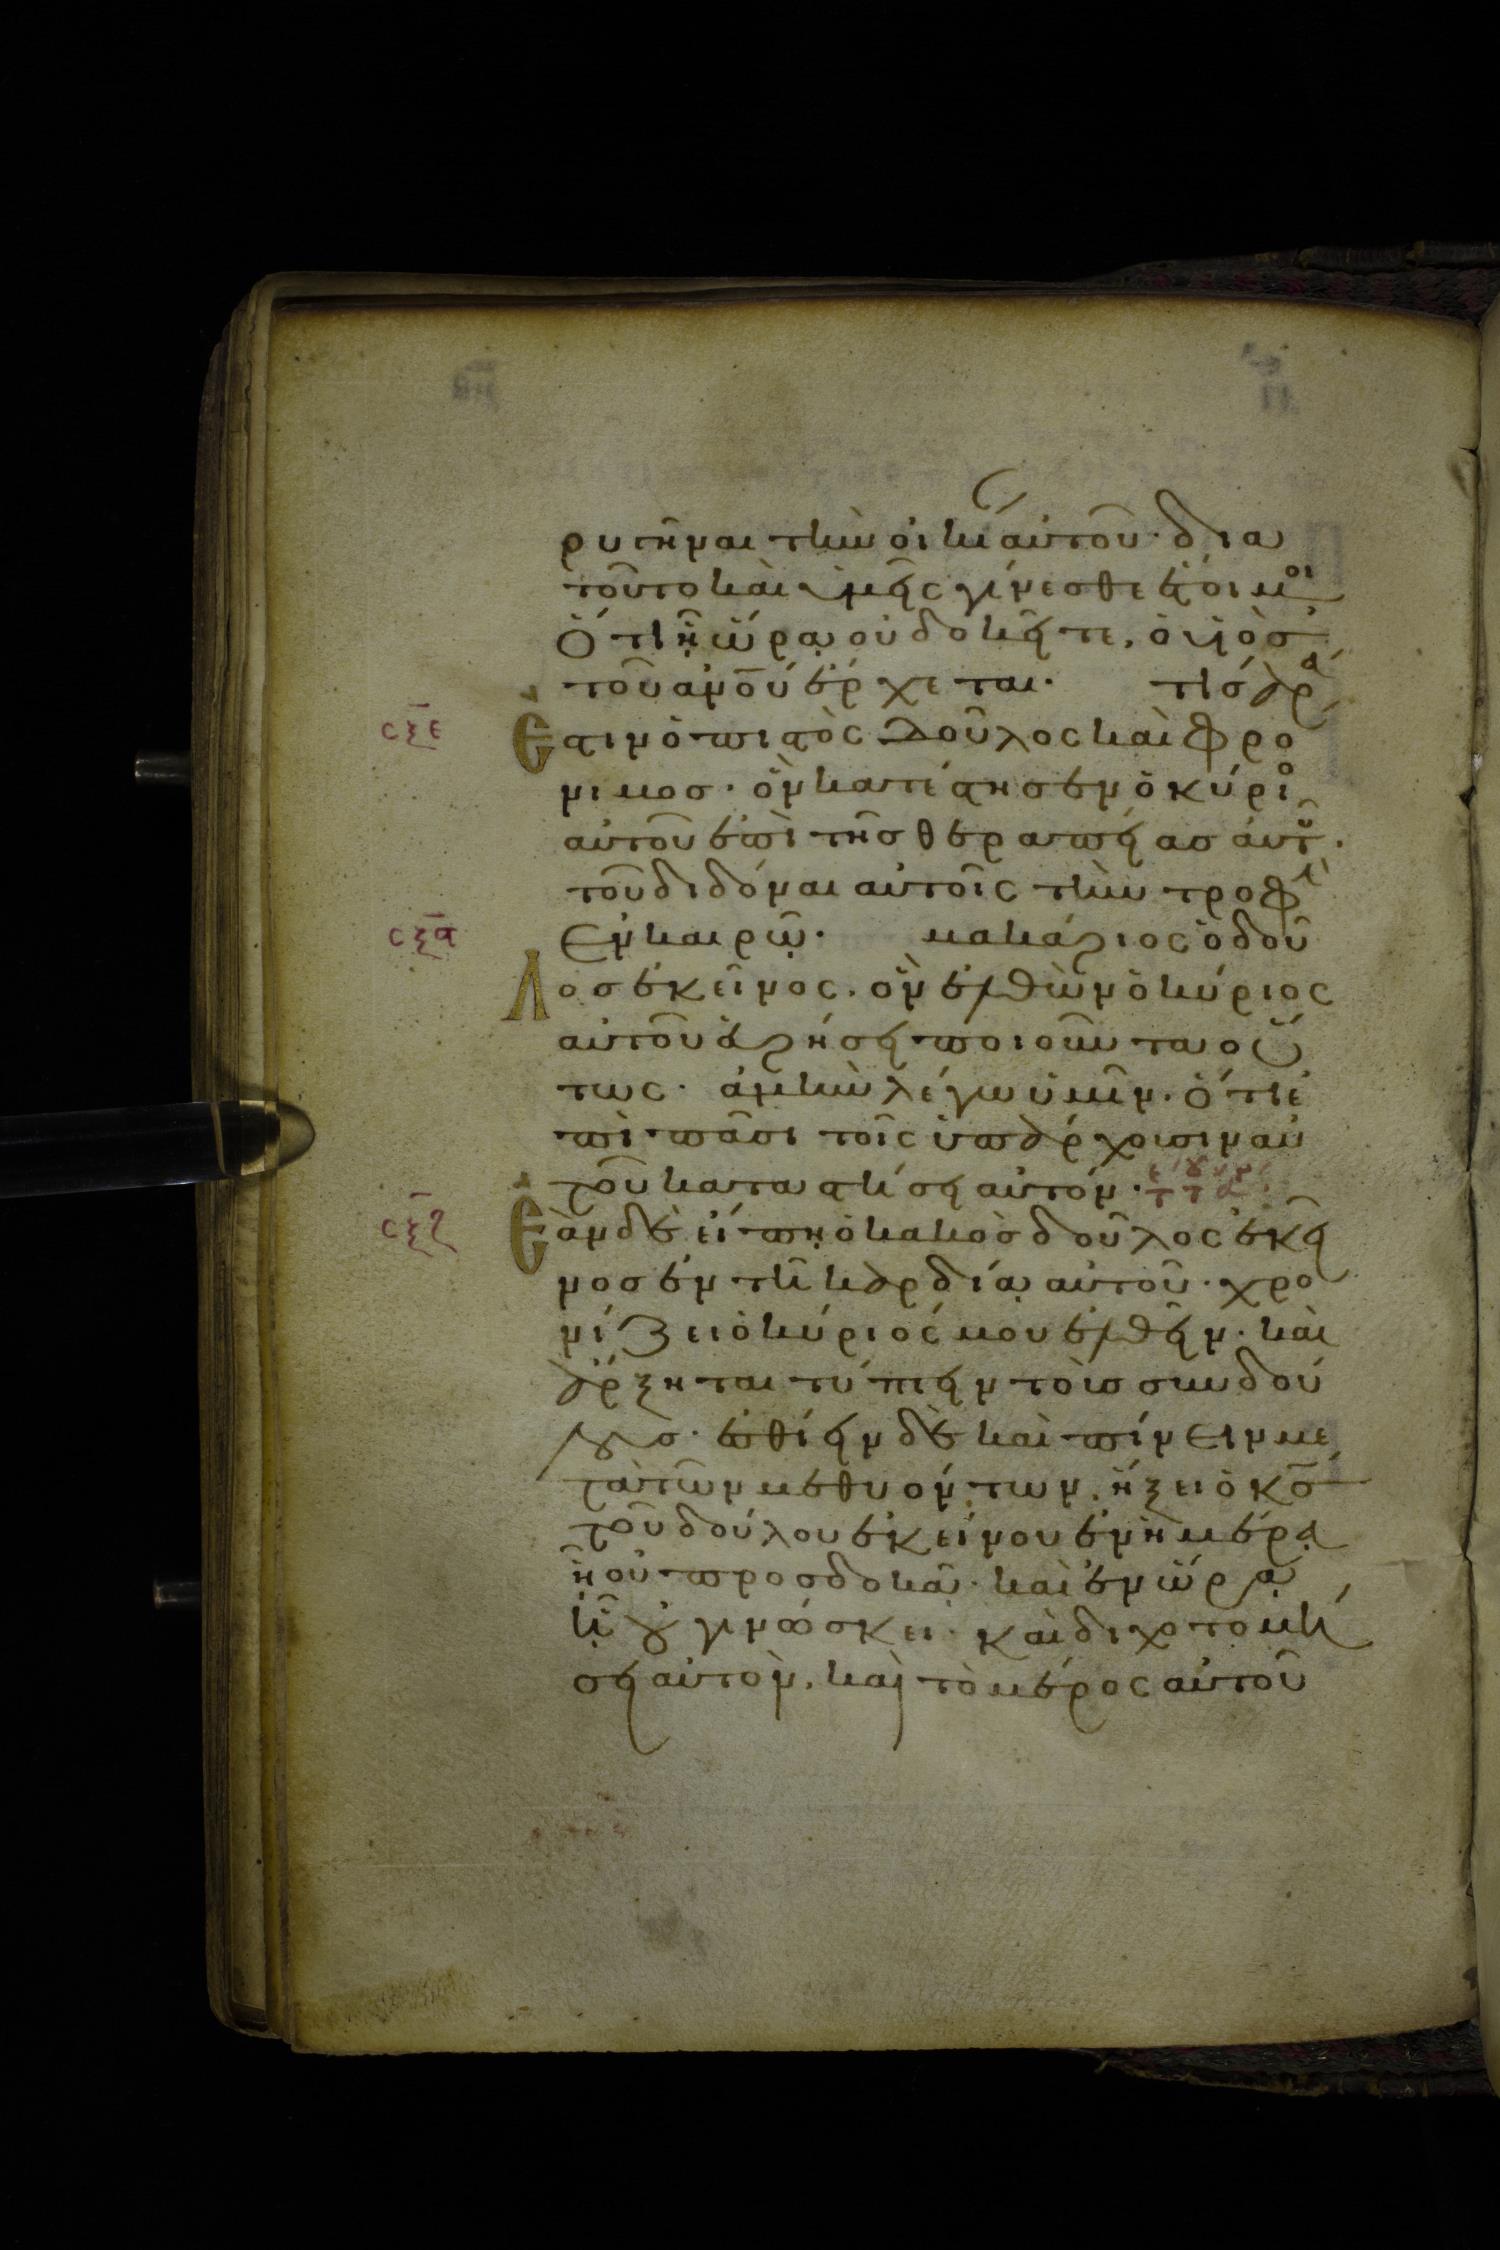 ρυγῆναι τὴν οἰκί αὐτοῦ· δια
τοῦτο καὶ ὑμεῖς γίνεσθε ἕτοιμοι
Ὅτι ᾗ ὥρᾳ οὐ δοκεῖτε, ὁ υἱὸσ
τοῦ ἀνοῦ ἔρχεται· τίς ἄρα
σξε
Ἐστιν ὁ πιστὸς δοῦλος καὶ φρο
νιμοσ· ὃν κατέστησεν ὁ κύριο
αὐτοῦ ἐπὶ τῆσ θεραπείασ αὐτοῦ·
τοῦ διδόναι αὐτοῖς τὴν τροφὴ
σξϛ
Ἐν καιρῷ· μακάριος ὁ δοῦ
λοσ ἐκεῖνος· ὃν ἐλθὼν ὁ κύριος
αὐτοῦ εὑρήσει ποιοῦντα οὕ
τως· ἀμὴν λέγω ὑμῖν· ὅτι ἐ
πὶ πᾶσι τοῖς ὑπάρχουσιν αὐ
τοῦ καταστήσει αὐτόν·
σξζ
Ἐὰν δὲ εἴπῃ ὁ κακὸσ δοῦλος ἐκεῖ
νοσ ἐν τῇ καρδίᾳ αὐτοῦ· χρο
νίζει ὁ κύριός μου ἐλθεῖν· καὶ
ἄρξηται τύπτειν τοὺσ συνδού
λουσ· ἐσθίειν δὲ καὶ πίνειν με
τὰ τῶν μεθυόντων· ἥξει ὁ κσ
τοῦ δούλου ἐκείνου ἐν ἡμέρᾳ
ᾗ οὐ προσδοκᾷ· καὶ ἐν ὥρᾳ
ᾗ οὐ γινώσκει· καὶ διχοτομή
σει αὐτὸν, καὶ τὸ μέρος αὐτοῦ